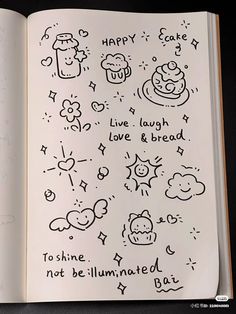 HAPPY
cake
Live. laugh
love & bread
To shine.
not be illuminated
Bai
小红书